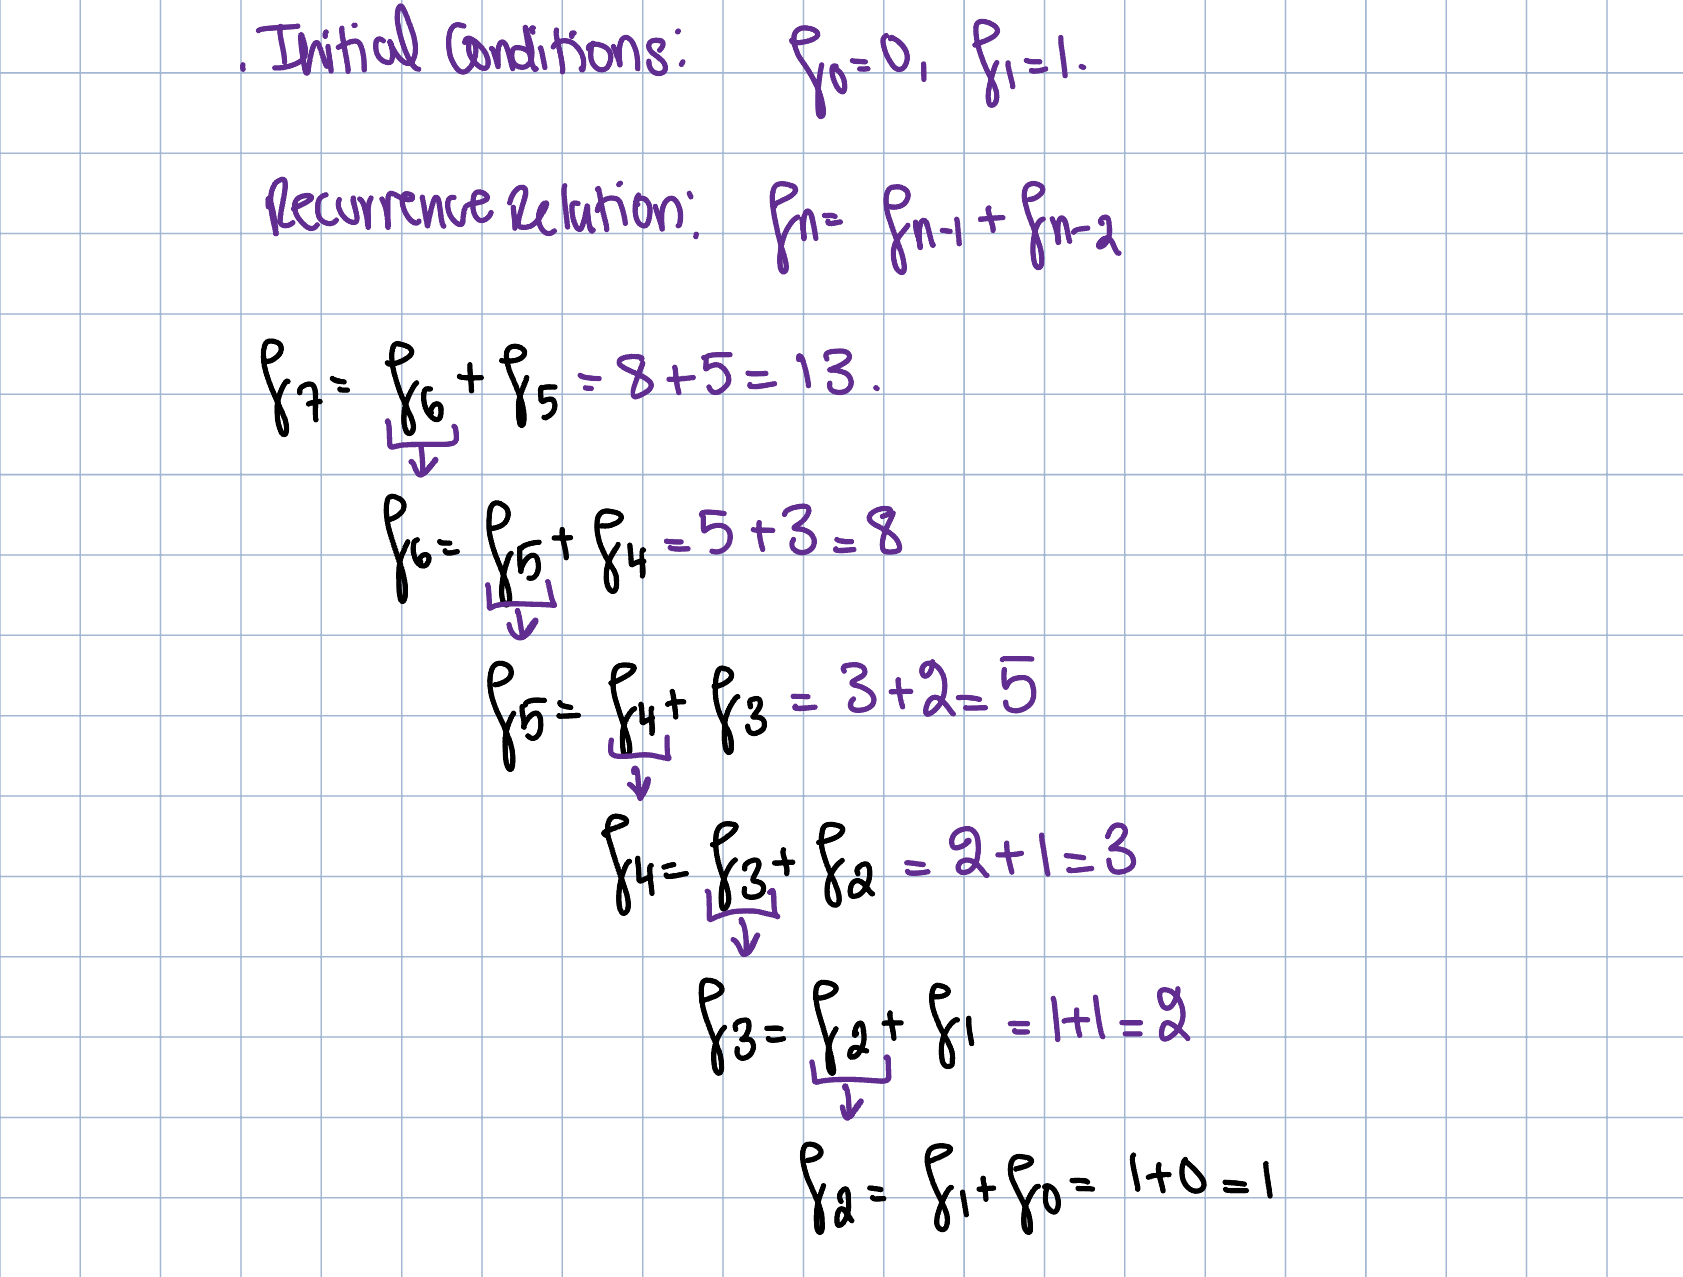 . Initial Conditions: f₀=0, f₁=1.
Recurrence Relation: fₙ= fₙ₋₁ + fₙ₋₂
f₇= f₆ + f₅ = 8+5=13.
f₆= f₅ + f₄ = 5+3=8
f₅= f₄ + f₃ = 3+2=5
f₄= f₃ + f₂ = 2+1=3
f₃= f₂ + f₁ = 1+1=2
f₂= f₁+f₀= 1+0=1